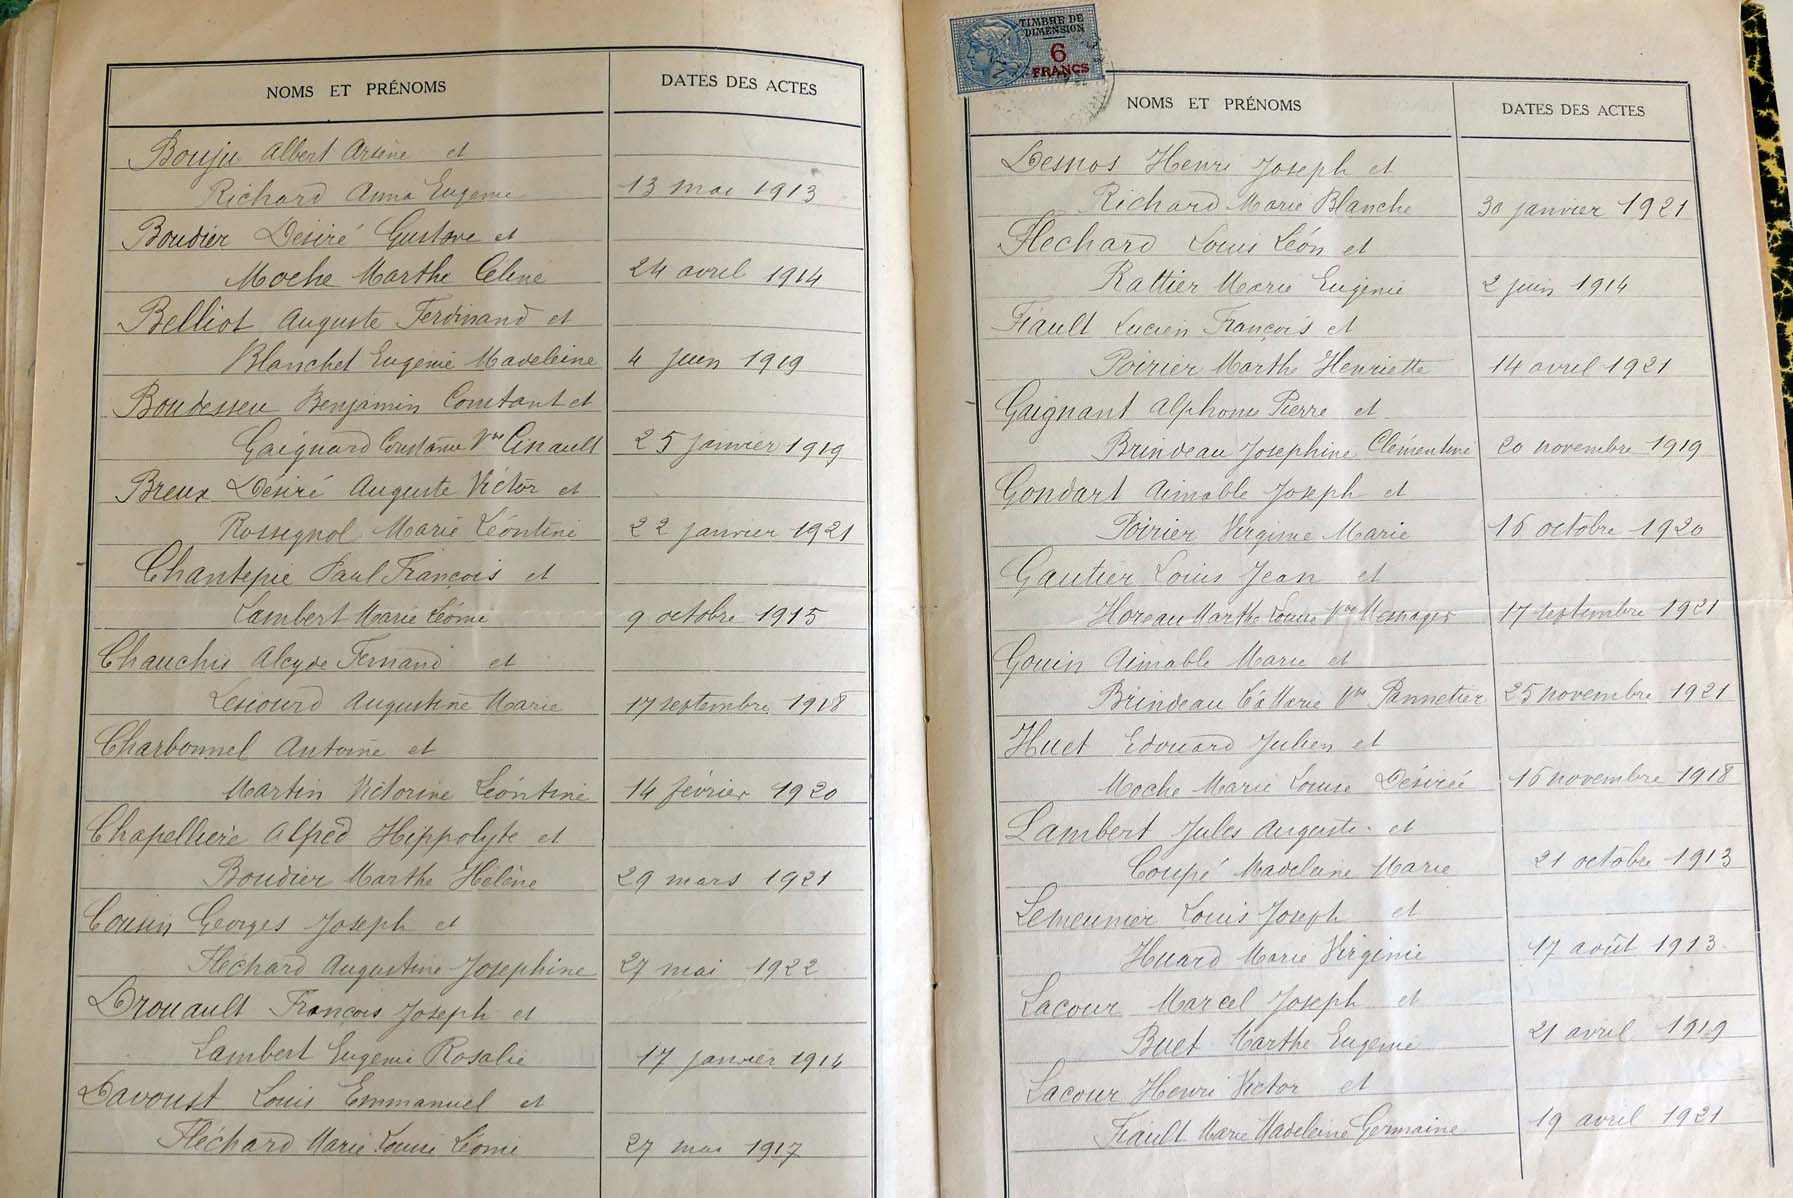 NOMS ET PRÉNOMS DATES DES ACTES
Bouju Albert Arsène et
Richard Anna Eugenie 13 mai 1913
Boudier Désiré Gustave et
Moche Marthe Céline 24 avril 1914
Belliot Auguste Ferdinand et
Blanchet Eugenie Madeleine 4 juin 1919
Boudesseu Benjamin Constant et
Gaignard Vve 25 janvier 1919
Breux Désiré Auguste Victor et
Rossegnol Marie Léontine 22 janvier 1921
Chantepie Paul François et
Lambert Marie Léonie 9 octobre 1915
Chauchis Alcyde Fernand et
Augustine Marie 17 septembre 1918
Charbonnel Antoine et
Martin Victorine Léontine 14 février 1920
Chapellière Alfred Hippolyte et
Boudier Marthe Hélène 29 mars 1921
Cousin Georges Joseph et
Fléchard Augustine Josephine 27 mai 1922
Drouault François Joseph et
Lambert Eugenie Rosalie 17 janvier 1914
Davoust Louis Emmanuel et
Fléchard Marie Louise Léonie 27 mai 1917
TIMBRE DE
DIMENSION
6
FRANCS
NOMS ET PRÉNOMS DATES DES ACTES
Desnos Henri Joseph et
Richard Marie Blanche 30 janvier 1921
Flechard Louis Léon et
Rattier Marie Eugénie 2 juin 1914
Fiault Lucien François et
Poirier Marthe Henriette 14 avril 1921
Gaignant Alphonse Pierre et
Brindeau Josephine Clémentine 20 novembre 1919
Gondart Aimable Joseph et
Poirier Virginie Marie 16 octobre 1920
Gautier Louis Jean et
Horeau Marthe Louise Vve Mesnager 17 septembre 1921
Gouin Aimable Marie et
Brindeau Marie Vve Pannetier 25 novembre 1921
Huet Edouard Julien et
Moche Marie Louise Désirée 16 novembre 1918
Lambert Jules Auguste et
Coupé Madeleine Marie 21 octobre 1913
Lemeunier Louis Joseph et
Huard Marie Virginie 17 août 1913
Lacour Marcel Joseph et
Buet Marthe Eugenie 21 avril 1919
Lacour Henri Victor et
Fiault Marie Madeleine Germaine 19 avril 1921